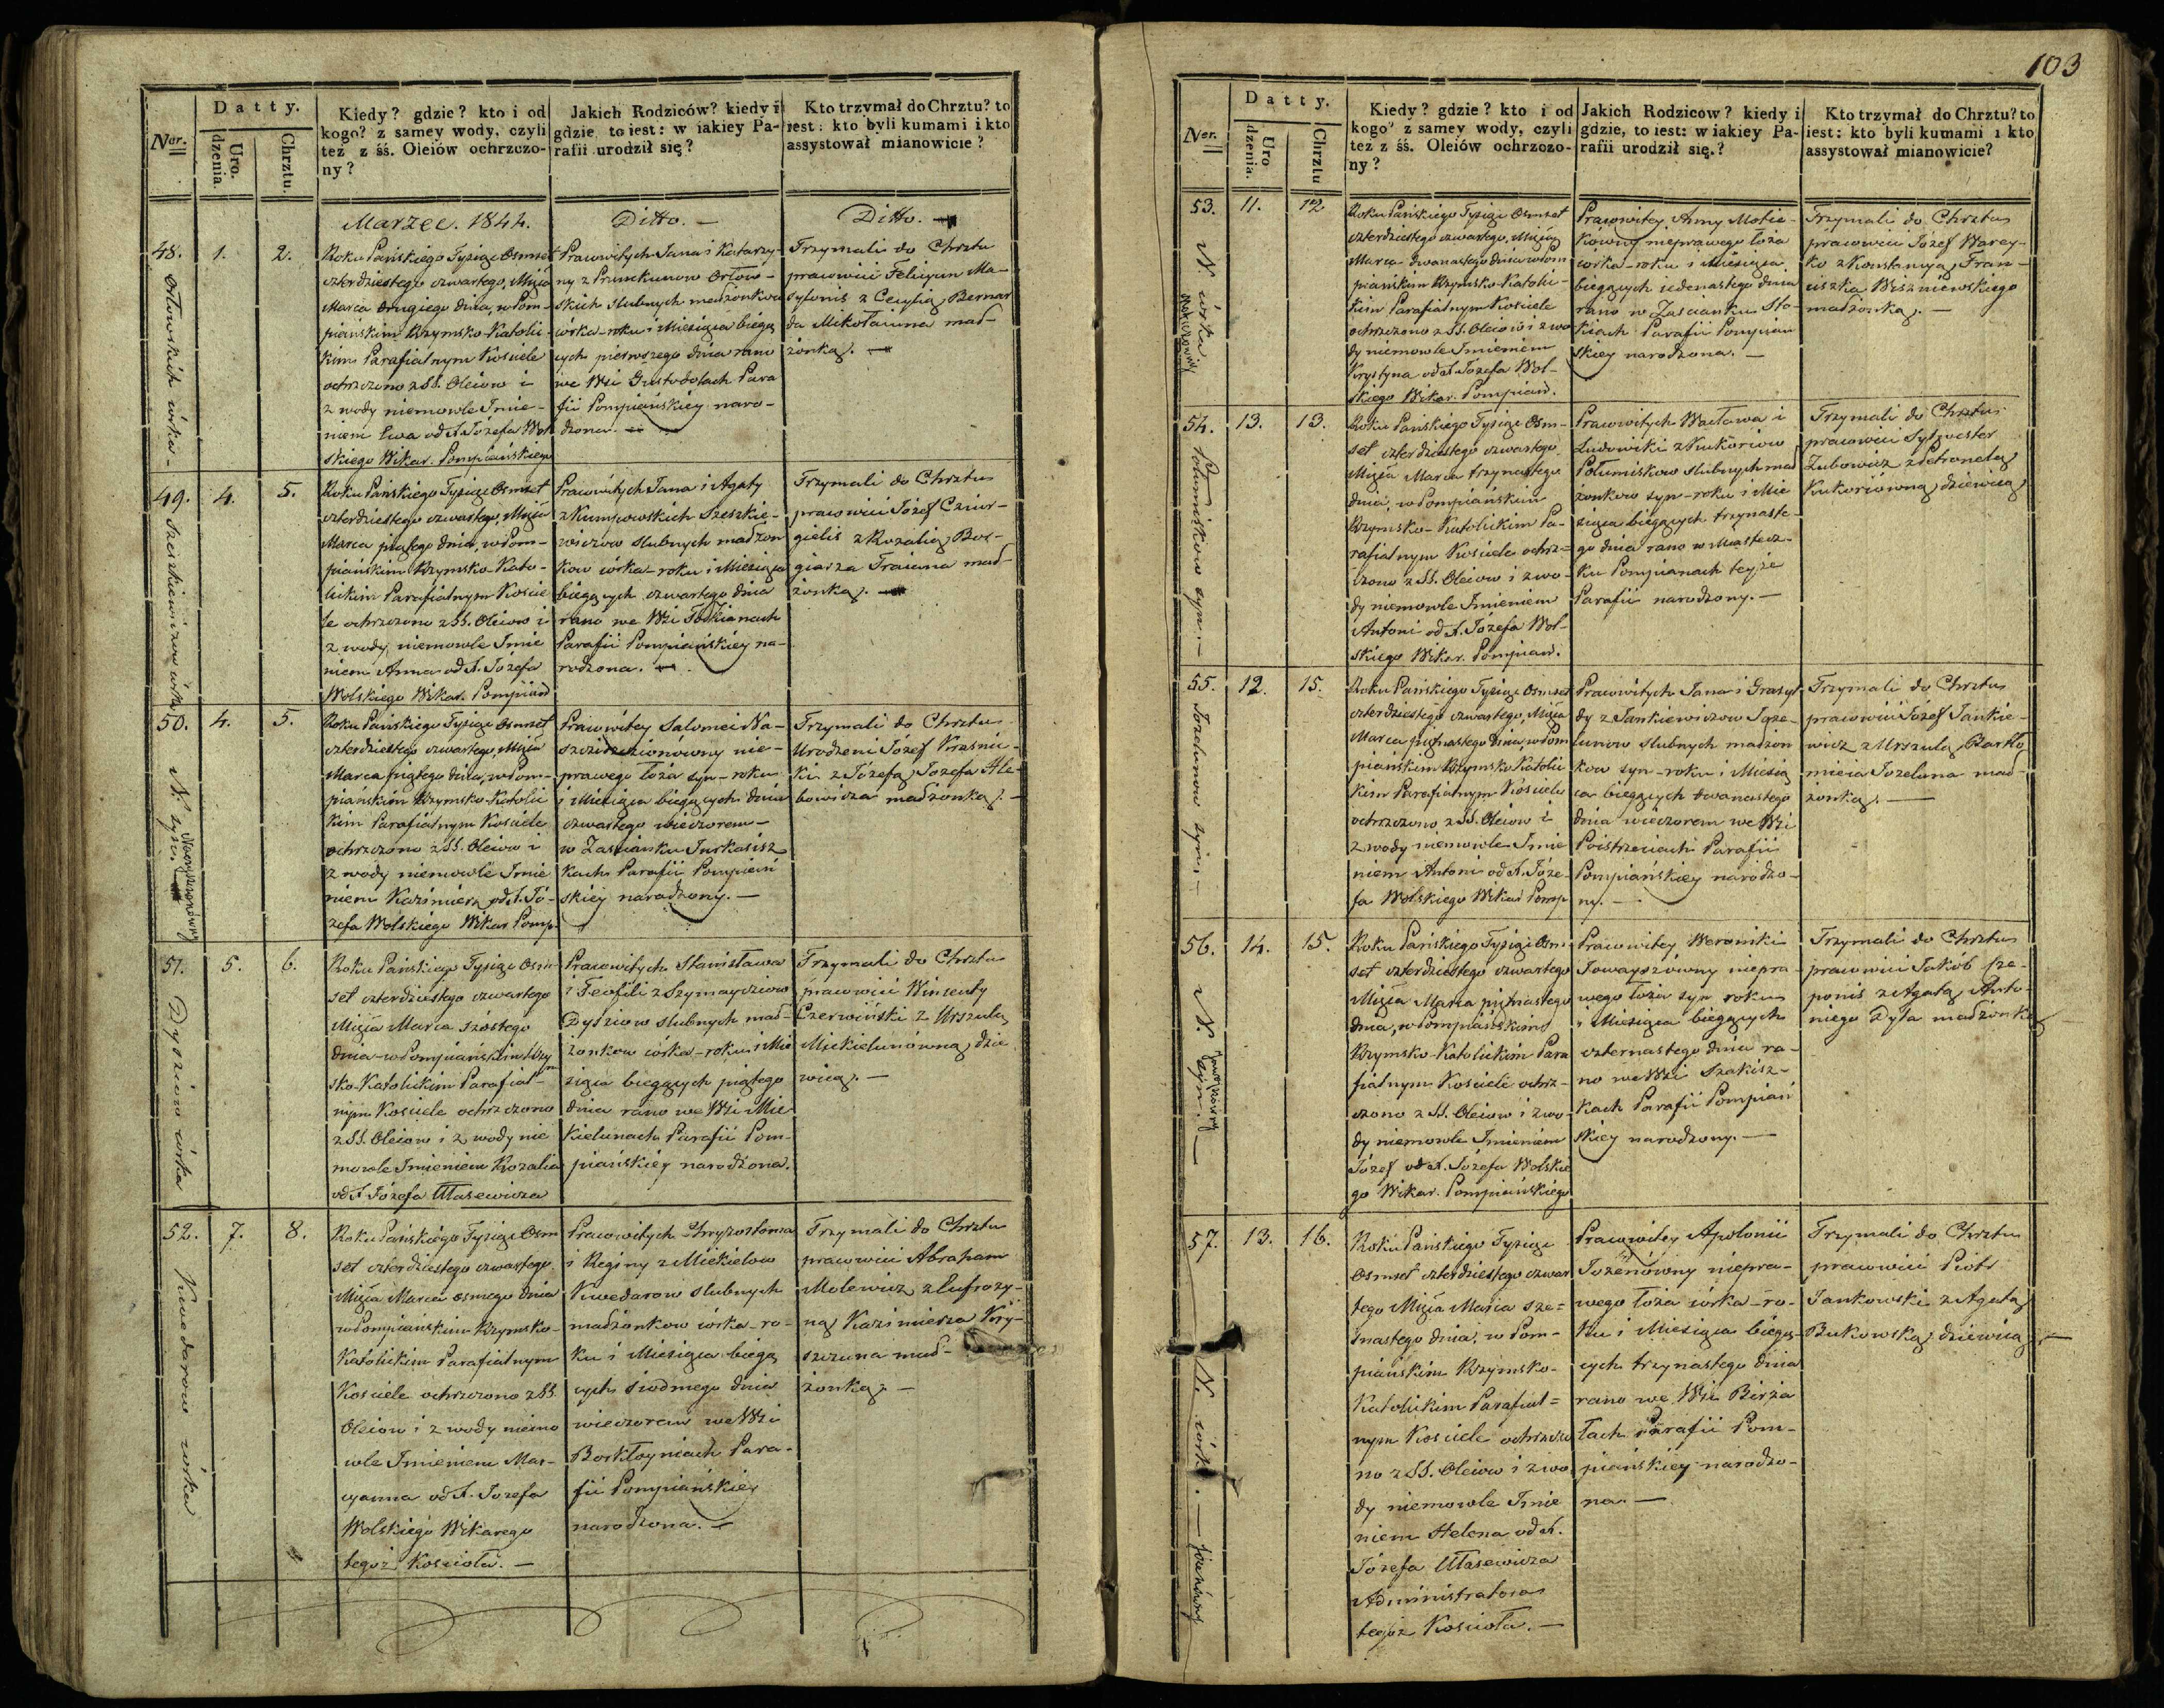 Datty.
Ner.
Uro.
dzenia.
Chrztu.
Kiedy? gdzie? kto i od
kogo? z samey wody, czyli
też z śś. Oleiów ochrzczo-
ny?
Jakich Rodziców? kiedy i
gdzie, to iest: w iakiey Pa-
rafii urodził się?
Kto trzymał do Chrztu? to
iest: kto byli kumami i kto
assystował mianowicie?
Marzec. 1844.
Ditto. —
Ditto. —
48.
Orłowskich córka -
1.
2.
Roku Pańskiego Tysiąc Osmset
czterdziestego czwartego, Msca
Marca drugiego dnia, w Pom-
piańskim Rzymsko-Katolic-
kim Parafialnym Kosciele
ochrzczono z SS. Oleiow i
z wody niemowle Imie-
niem Ewa od X. Józefa Wol
skiego Wikar. Pompiańskiego
Prawowitych Jana i Katarzy-
ny z Prunckunow Orłow-
skich slubnych małżonkow
córka - roku i Miesiąca bieżą
cych pierwszego dnia rano
we Wsi Gustodolach Para
fii Pompiańskiey naro-
dzona. —
Trzymali do Chrztu
pracowici Felicyan Ma-
sylonis z Cecylią Bernar
da Mikołaiuna mał-
żonką. —
49.
Szeszkiewiczow córka
4.
5.
Roku Pańskiego Tysiąc Osmset
czterdziestego czwartego, Msca
Marca piątego dnia, w Pom-
piańskim Rzymsko-Kato-
lickim Parafialnym Koscie
le ochrzczono z SS. Oleiow i
z wody, niemowle Imie
niem Anna od X. Józefa
Wolskiego Wikar. Pompiań
Prawowitych Jana i Agaty
z Kumpowskich Szeszkie-
wiczow slubnych małżon
kow córka - roku i Miesiąca
bieżących czwartego dnia
rano we Wsi
Parafii Pompiańskiey na-
rodzona. —
Trzymali do Chrztu
pracowici Józef Cziur-
gielis z Rozalią
Traiana mał-
żonką. —
50.
N. syn.
4.
5.
Roku Pańskiego Tysiąc Osmset
czterdziestego czwartego, Msca
Marca piątego dnia, w Pom-
piańskim Rzymsko-Katolic
kim Parafialnym Kosciele
ochrzczono z SS. Oleiow i
z wody niemowle Imie
niem Kazimierz od X. Jó-
zefa Wolskiego Wikar Pomp.
Prawowitey Salomei
nie-
prawego łoża syn - roku
i Miesiąca bieżących dnia
czwartego wieczorem -
w Zascianku Jurkasisz
kach Parafii Pompiań
skiey narodzony. —
Trzymali do Chrztu
Urodzeni Józef Krasnic-
ki z Józefą, Jozefa Ale-
bowicza małżonką. —
51.
Dysziow córka
5.
6.
Roku Pańskiego Tysiąc Osm-
set czterdziestego czwartego
Msca Marca szóstego
dnia - w Pompiańskim Rzym
sko-Katolickim Parafial-
nym Kosciele ochrzczono
z SS. Oleiow i z wody nie
mowle Imieniem Rozalia
od X. Józefa Ułasewicza
Prawowitych Stanisława
i Teofili z Szymaycziow
Dysziow slubnych mał-
żonkow córka - roku i Mie
siąca bieżących piątego
dnia rano we Wsi Mic
kielunach Parafii Pom-
piańskiey narodzona.
Trzymali do Chrztu
pracowici Wincenty
Czerwiński z Urszulą
Mickielunówną, dzie
wicą. —
52.
Kwedarow córka
7.
8.
Roku Pańskiego Tysiąc Osm
set czterdziestego czwartego
Msca Marca osmego dnia
w Pompiańskim Rzymsko-
Katolickim Parafialnym
Kosciele ochrzczono z SS.
Oleiow i z wody niemo
wle Imieniem Mar-
cyanna od X. Jozefa
Wolskiego Wikarego
tegoż Kosciola. —
Prawowitych Chryzostoma
i Reginy z Mickielow
Kwedarow slubnych
małżonkow córka - ro-
ku i Miesiąca bieżą
cych siodmego dnia
wieczorem we Wsi
Borkłoyniach Para-
fii Pompiańskiey
narodzona. —
Trzymali do Chrztu
pracowici Abraham
Molewicz z Eufrozy-
ną Kazimierza Kry-
szczuna mał-
żonką. —
103
Datty.
Ner.
Uro
dzenia.
Chrztu
Kiedy? gdzie? kto i od
kogo? z samey wody, czyli
też z śś. Oleiów ochrzczo-
ny?
Jakich Rodziców? kiedy i
gdzie, to iest: w iakiey Pa-
rafii urodził się.?
Kto trzymał do Chrztu? to
iest: kto byli kumami i kto
assystował mianowicie?
53.
N. córka
11.
12
Roku Pańskiego Tysiąc Osmset
czterdziestego czwartego, Msca
Marca dwunastego dnia w Pom
piańskim Rzymsko-Katolic-
kim Parafialnym Kosciele
ochrzczono z SS. Oleiow i z wo
dy niemowle Imieniem
Krystyna od X. Józefa Wol-
skiego Wikar. Pompiań.
Prawowitey Anny Motie-
kówny nieprawego łoża
córka - roku i Miesiąca
bieżących iedenastego dnia
rano w Zascianku Sło-
kiach Parafii Pompiań
skiey narodzona. —
Trzymali do Chrztu
pracowici Józef Warey-
ko z Konstancyą Fran-
ciszka Wiszniewskiego
małżonką. —
54.
Połumiskow syn. —
13.
13.
Roku Pańskiego Tysiąc Osm-
set czterdziestego czwartego
Msca Marca trzynastego
dnia, w Pompiańskim
Rzymsko-Katolickim Pa-
rafialnym Kosciele ochrz=
czono z SS. Oleiow i z wo-
dy niemowle Imieniem
Antoni od X. Józefa Wol-
skiego Wikar. Pompiań.
Prawowitych Wacława i
Ludwiki z Kukoriow
Połumiskow slubnych mał
żonkow syn - roku i Mie
siąca bieżących trzynaste-
go dnia rano w Miastecz-
ku Pompianach teyże
Parafii narodzony. —
Trzymali do Chrztu
pracowici Sylwester
Zubowicz z Petronelą
Kukoriówną, dziewicą
55.
Jozelunow syn. —
12.
15.
Roku Pańskiego Tysiąc Osmset
czterdziestego czwartego, Msca
Marca piętnastego dnia, w Pom
piańskim Rzymsko Katolic
kim Parafialnym Kosciele
ochrzczono z SS. Oleiow i
z wody niemowle Imie
niem Antoni od X. Józe-
fa Wolskiego Wikar Pomp
Prawowitych Jana i Grasyl
dy z Jankiewiczow Joze-
lunow slubnych małżon
kow syn - roku i Miesią
ca bieżących dwunastego
dnia wieczorem we Wsi
Poistrzeciach Parafii
Pompiańskiey narodzo-
ny. —
Trzymali do Chrztu
pracowici Józef Jankie-
wicz z Urszulą, Bartło
mieia Jozeluna mał-
żonką. —
56.
N. syn. —
14.
15.
Roku Pańskiego Tysiąc Osm-
set czterdziestego czwartego
Msca Marca piętnastego
dnia, w Pompiańskim
Rzymsko-Katolickim Para
fialnym Kosciele ochrz-
czono z SS. Oleiow i z wo-
dy niemowle Imieniem
Józef od X. Józefa Wolskie
go Wikar. Pompiańskiego
Prawowitey Weroniki
Jowayszówny niepra
wego łoża syn roku
i Miesiąca bieżących
czternastego dnia ra-
no we Wsi Szakisz-
kach Parafii Pompiań
skiey narodzony. —
Trzymali do Chrztu
pracowici Jakób Sze-
ponis z Agatą, Anto-
niego Dyla małżonką
57.
N. córka. — Jozenówny
13.
16.
Roku Pańskiego Tysiąc
Osmset czterdziestego czwar
tego Msca Marca sze=
snastego dnia, w Pom-
piańskim Rzymsko-
Katolickim Parafial=
nym Kosciele ochrzczo
no z SS. Oleiow i z wo
dy niemowle Imie
niem Helena od X.
Józefa Ułasewicza
Administratora
tegoż Kosciola. —
Prawowitey Apolonii
Jozenówny niepra-
wego łoża córka - ro-
ku i Miesiąca bieżą-
cych trzynastego dnia
rano we Wsi Birża
łach Parafii Pom-
piańskiey narodzo-
na. —
Trzymali do Chrztu
pracowici Piotr
Jankowski z Agatą
Bukowską, dziewicą —